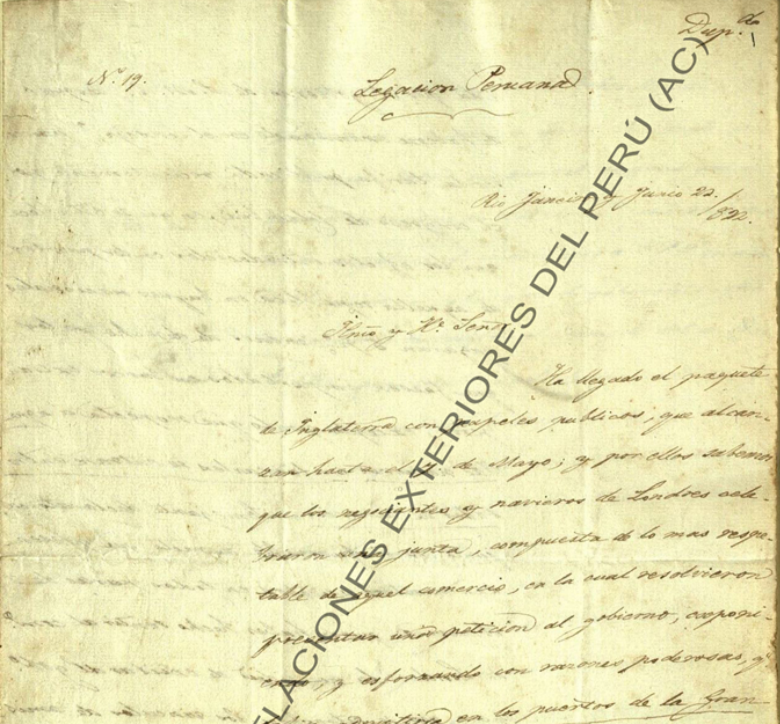 Dup.do
Nº 19.
Legacion Peruana.
Rio Janeiro y Junio 22./822.
Ylmo y Hº. Señor
Ha llegado el paquete
de Inglaterra con papeles publicos, que alcan-
zan hasta el de Mayo; y por ellos sabemos
que los negociantes y navieros de Londres cele-
braron una junta, compuesta de lo mas respe-
table de aquel comercio, en la cual resolvieron
presentar una peticion al gobierno, exponi-
endo, y esforzando con razones poderosas, q.
en los puertos de la Gran
RELACIONES EXTERIORES DEL PERÚ (AC)